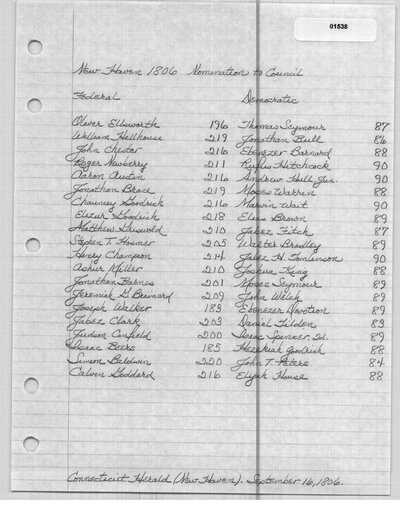 01538
New Haven 1806 Nomination to Council
Federal Democratic
Oliver Ellsworth 196 Thomas Seymour 87
William Hillhouse 219 Jonathan Bull 86
John Chester 216 Ebenezer Barnard 88
Roger Newberry 211 Rufus Hitchcock 90
Aaron Austin 216 Andrew Hull Jun. 90
Jonathan Brace 219 Moses Warren 88
Chauncey Goodrich 216 Marvin Wait 90
Elizur Goodrich 218 Elias Brown 89
Matthew Griswold 210 Jabez Fitch 87
Stephen T. Hosmer 205 Walter Bradley 89
Henry Champion 214 Jabez H. Tomlinson 90
Asher Miller 210 Joshua King 88
Jonathan Barnes 201 Moses Seymour 89
Jeremiah G Brainard 209 John Welch 89
Joseph Walker 183 Ebenezer 89
Jabez Clark 203 Daniel Tilden 89
Judson Canfield 200 Isaac Spencer 2d. 89
Isaac Beers 185 Hezekiah Goodrich 88
Simeon Baldwin 220 John T. Peters 84
Calvin Goddard 216 Elijah House 88
Connecticut Herald (New Haven). September 16, 1806.